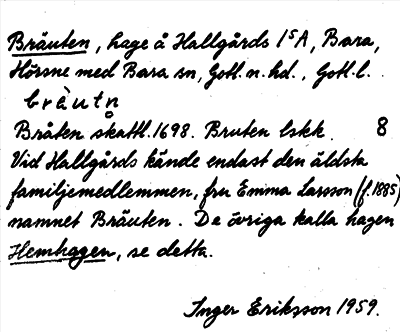 Bräuten, hage å Hallgårds 1⁵A, Bara,
Hörsne med Bara sn, Gotl. n. hd., Gotl. l.
bràutn̥
Bråten skattl. 1698. Bruten lskk. 8
Vid Hallgårds kände endast den äldsta
familjemedlemmen, fru Emma Larsson (f. 1885)
namnet Bräuten. De övriga kalla hagen
Hemhagen, se detta.
Inger Eriksson 1959.